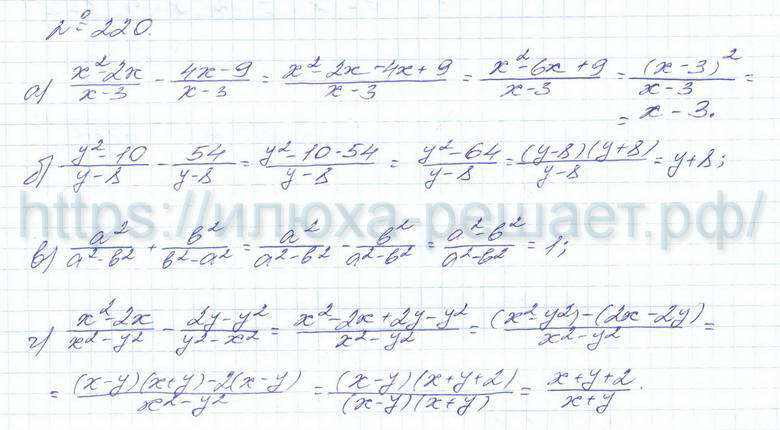 № 220.
а) (x²-2x)/(x-3) - (4x-9)/(x-3) = (x²-2x-4x+9)/(x-3) = (x²-6x+9)/(x-3) = (x-3)²/(x-3) =
= x-3.
б) (y²-10)/(y-8) - 54/(y-8) = (y²-10-54)/(y-8) = (y²-64)/(y-8) = (y-8)(y+8)/(y-8) = y+8;
https://илюха-решает.рф/
в) a²/(a²-в²) + в²/(в²-a²) = a²/(a²-в²) - в²/(a²-в²) = (a²-в²)/(a²-в²) = 1;
г) (x²-2x)/(x²-y²) - (2y-y²)/(y²-x²) = (x²-2x+2y-y²)/(x²-y²) = ((x²-y²)-(2x-2y))/(x²-y²) =
= ((x-y)(x+y)-2(x-y))/(x²-y²) = (x-y)(x+y+2)/((x-y)(x+y)) = (x+y+2)/(x+y).